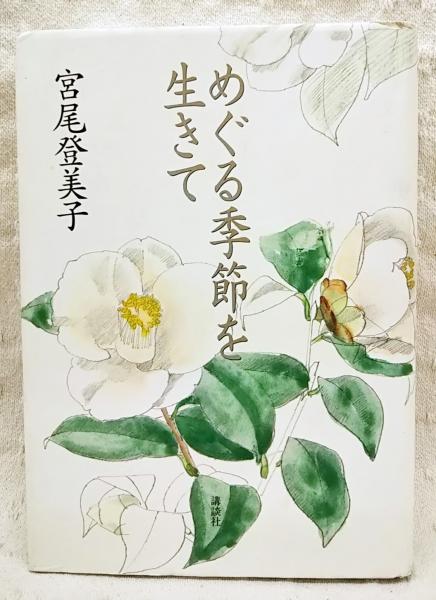 めぐる季節を
生きて
宮尾登美子
講談社